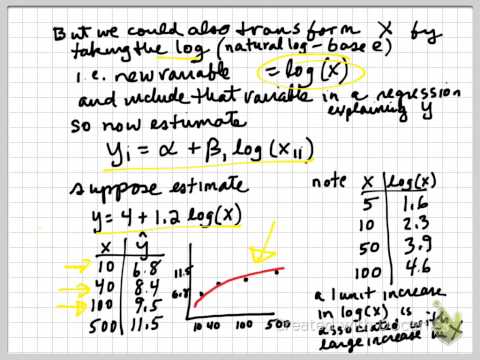 But we could also transform X by
taking the log (natural log - base e)
i.e. new variable = log(X)
and include that variable in a regression
explaining y
So now estimate
yi = α + β1 log(x1i)
Suppose estimate
y = 4 + 1.2 log(X)
X ŷ
10 6.8
40 8.4
100 9.5
500 11.5
11.5
6.8
10 40 100 500
note X log(x)
5 1.6
10 2.3
50 3.9
100 4.6
a 1 unit increase
in log(x) is
associated with
large increase in X